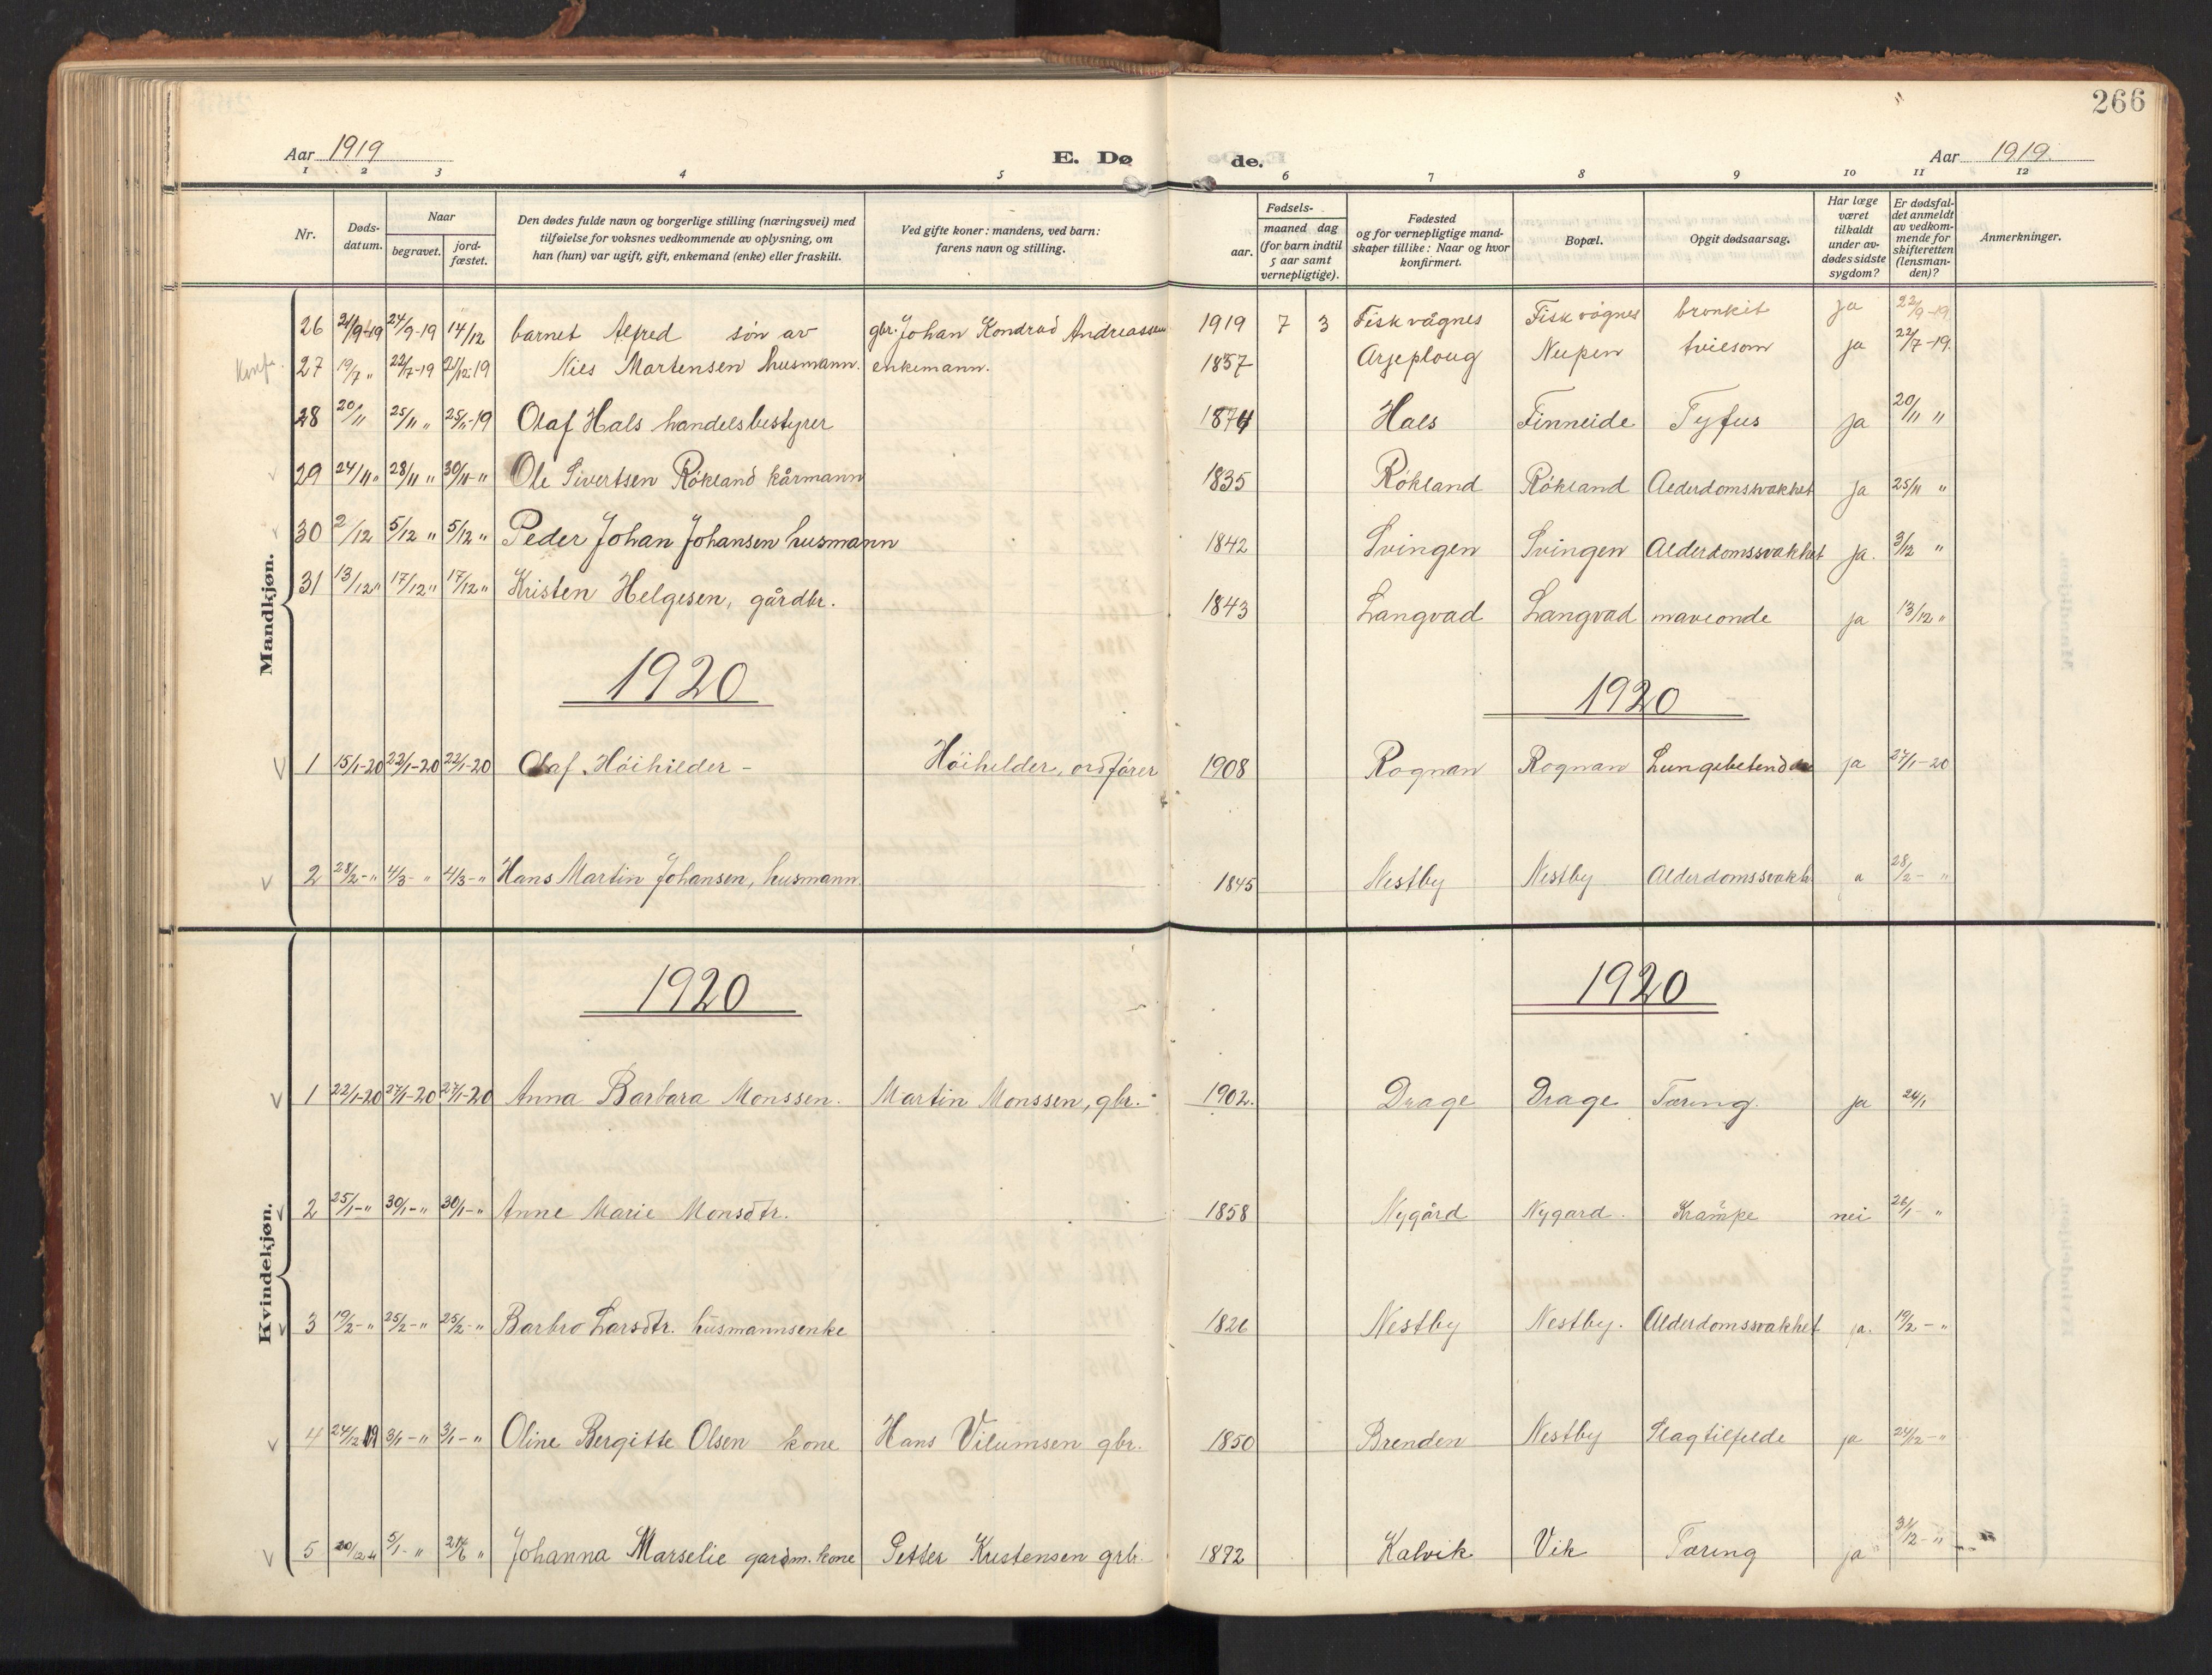 266
Aar 1919 E. Dø de. Aar 1919.
1 2 3 4 5 6 7 8 9 10 11 12
Nr.
Døds-
datum.
Naar
begravet.
jord-
fæstet.
Den dødes fulde navn og borgerlige stilling (næringsvei) med
tilføielse for voksnes vedkommende av oplysning, om
han (hun) var ugift, gift, enkemand (enke) eller fraskilt.
Ved gifte koner: mandens, ved barn:
farens navn og stilling.
Fødsels-
aar.
maaned dag
(for barn indtil
5 aar samt
vernepligtige).
Fødested
og for vernepligtige mand-
skaper tillike: Naar og hvor
konfirmert.
Bopæl.
Opgit dødsaarsag.
Har læge
været
tilkaldt
under av-
dødes sidste
sygdom?
Er dødsfal-
det anmeldt
av vedkom-
mende for
skifteretten
(lensman-
den)?
Anmerkninger.
Mandkjøn.
26 21/9-19 24/9-19 14/12 barnet Alfred søn av gbr. Johan Kondrad Andreassen 1919 7 3 Fiskvågnes Fiskvågnes bronkit ja 22/9-19
27 19/7 " 22/7-19 21/12-19 Nils Martensen husmann. enkemann. 1857 Arjeploug Nupen tvilsom ja 22/7-19.
28 20/11 25/11 " 25/11-19 Olaf Hals handelsbestyrer 1874 Hals Finneide Tyfus ja 20/11 "
29 24/11 " 28/11 " 30/11-" Ole Sivertsen Rökland kårmann 1835 Rökland Rökland Alderdomssvakhet ja 25/11 "
30 2/12 5/12 " 5/12 " Peder Johan Johansen husmann 1842 Svingen Svingen Alderdomssvakhet ja. 3/12 "
31 13/12 " 17/12 " 17/12 " Kristen Helgesen, gårdbr. 1843 Langvad Langvad maveonde ja 13/12 "
1920 1920
1 15/1-20 22/1-20 22/1-20 Olaf Höihilder - Höihilder, ordförer 1908 Rognan Rognan ja 27/1-20
2 28/2-" 4/3-" 4/3-" Hans Martin Johansen, husmann. 1845 Nestby Nestby Alderdomssvakh. " 28/2-"
Kvindekjøn.
1920 1920
1 22/1-20 27/1-20 27/1-20 Anna Barbara Monssen. Martin Monssen, gbr. 1902. Drage Drage Tæring. ja 24/1
2 25/1-" 30/1-" 30/1-" Anne Marie Monsdtr. 1858 Nygård Nygard. Krampe nei 26/1-"
3 19/2-" 25/2-" 25/2-" Barbro Larsdtr. husmannsenke 1826 Nestby Nestby. Alderdomssvakhet ja. 19/2-"
4 24/12 19 3/1-" 3/1-" Oline Bergitte Olsen kone Hans Vilumsen gbr. 1850 Brenden Nestby Slagtilfelde ja 24/12-"
5 20/12 " 5/1-" Johanna Marselie gardm. kone Petter Kristensen grbr. 1892 Kalvik Vik Tæring ja 31/12-"